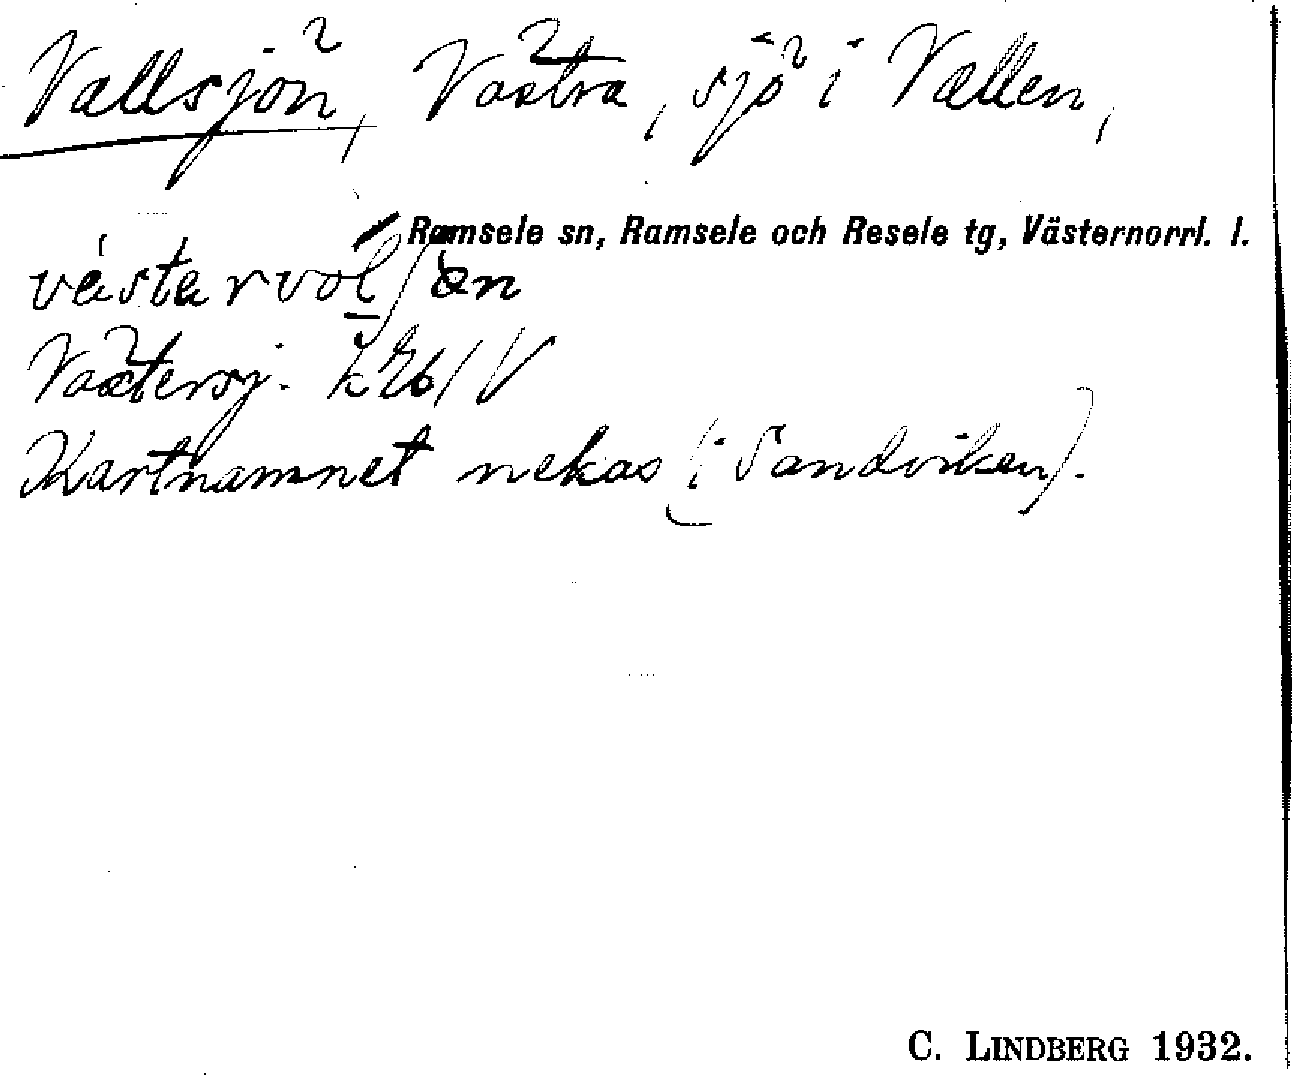 Vallsjön, Västra, sjö i Vallen,
Ramsele sn, Ramsele och Resele tg, Västernorrl. l.
Västersj. k 26/V
Kartnamnet nekas (i Sandviken).
C. LINDBERG 1932.